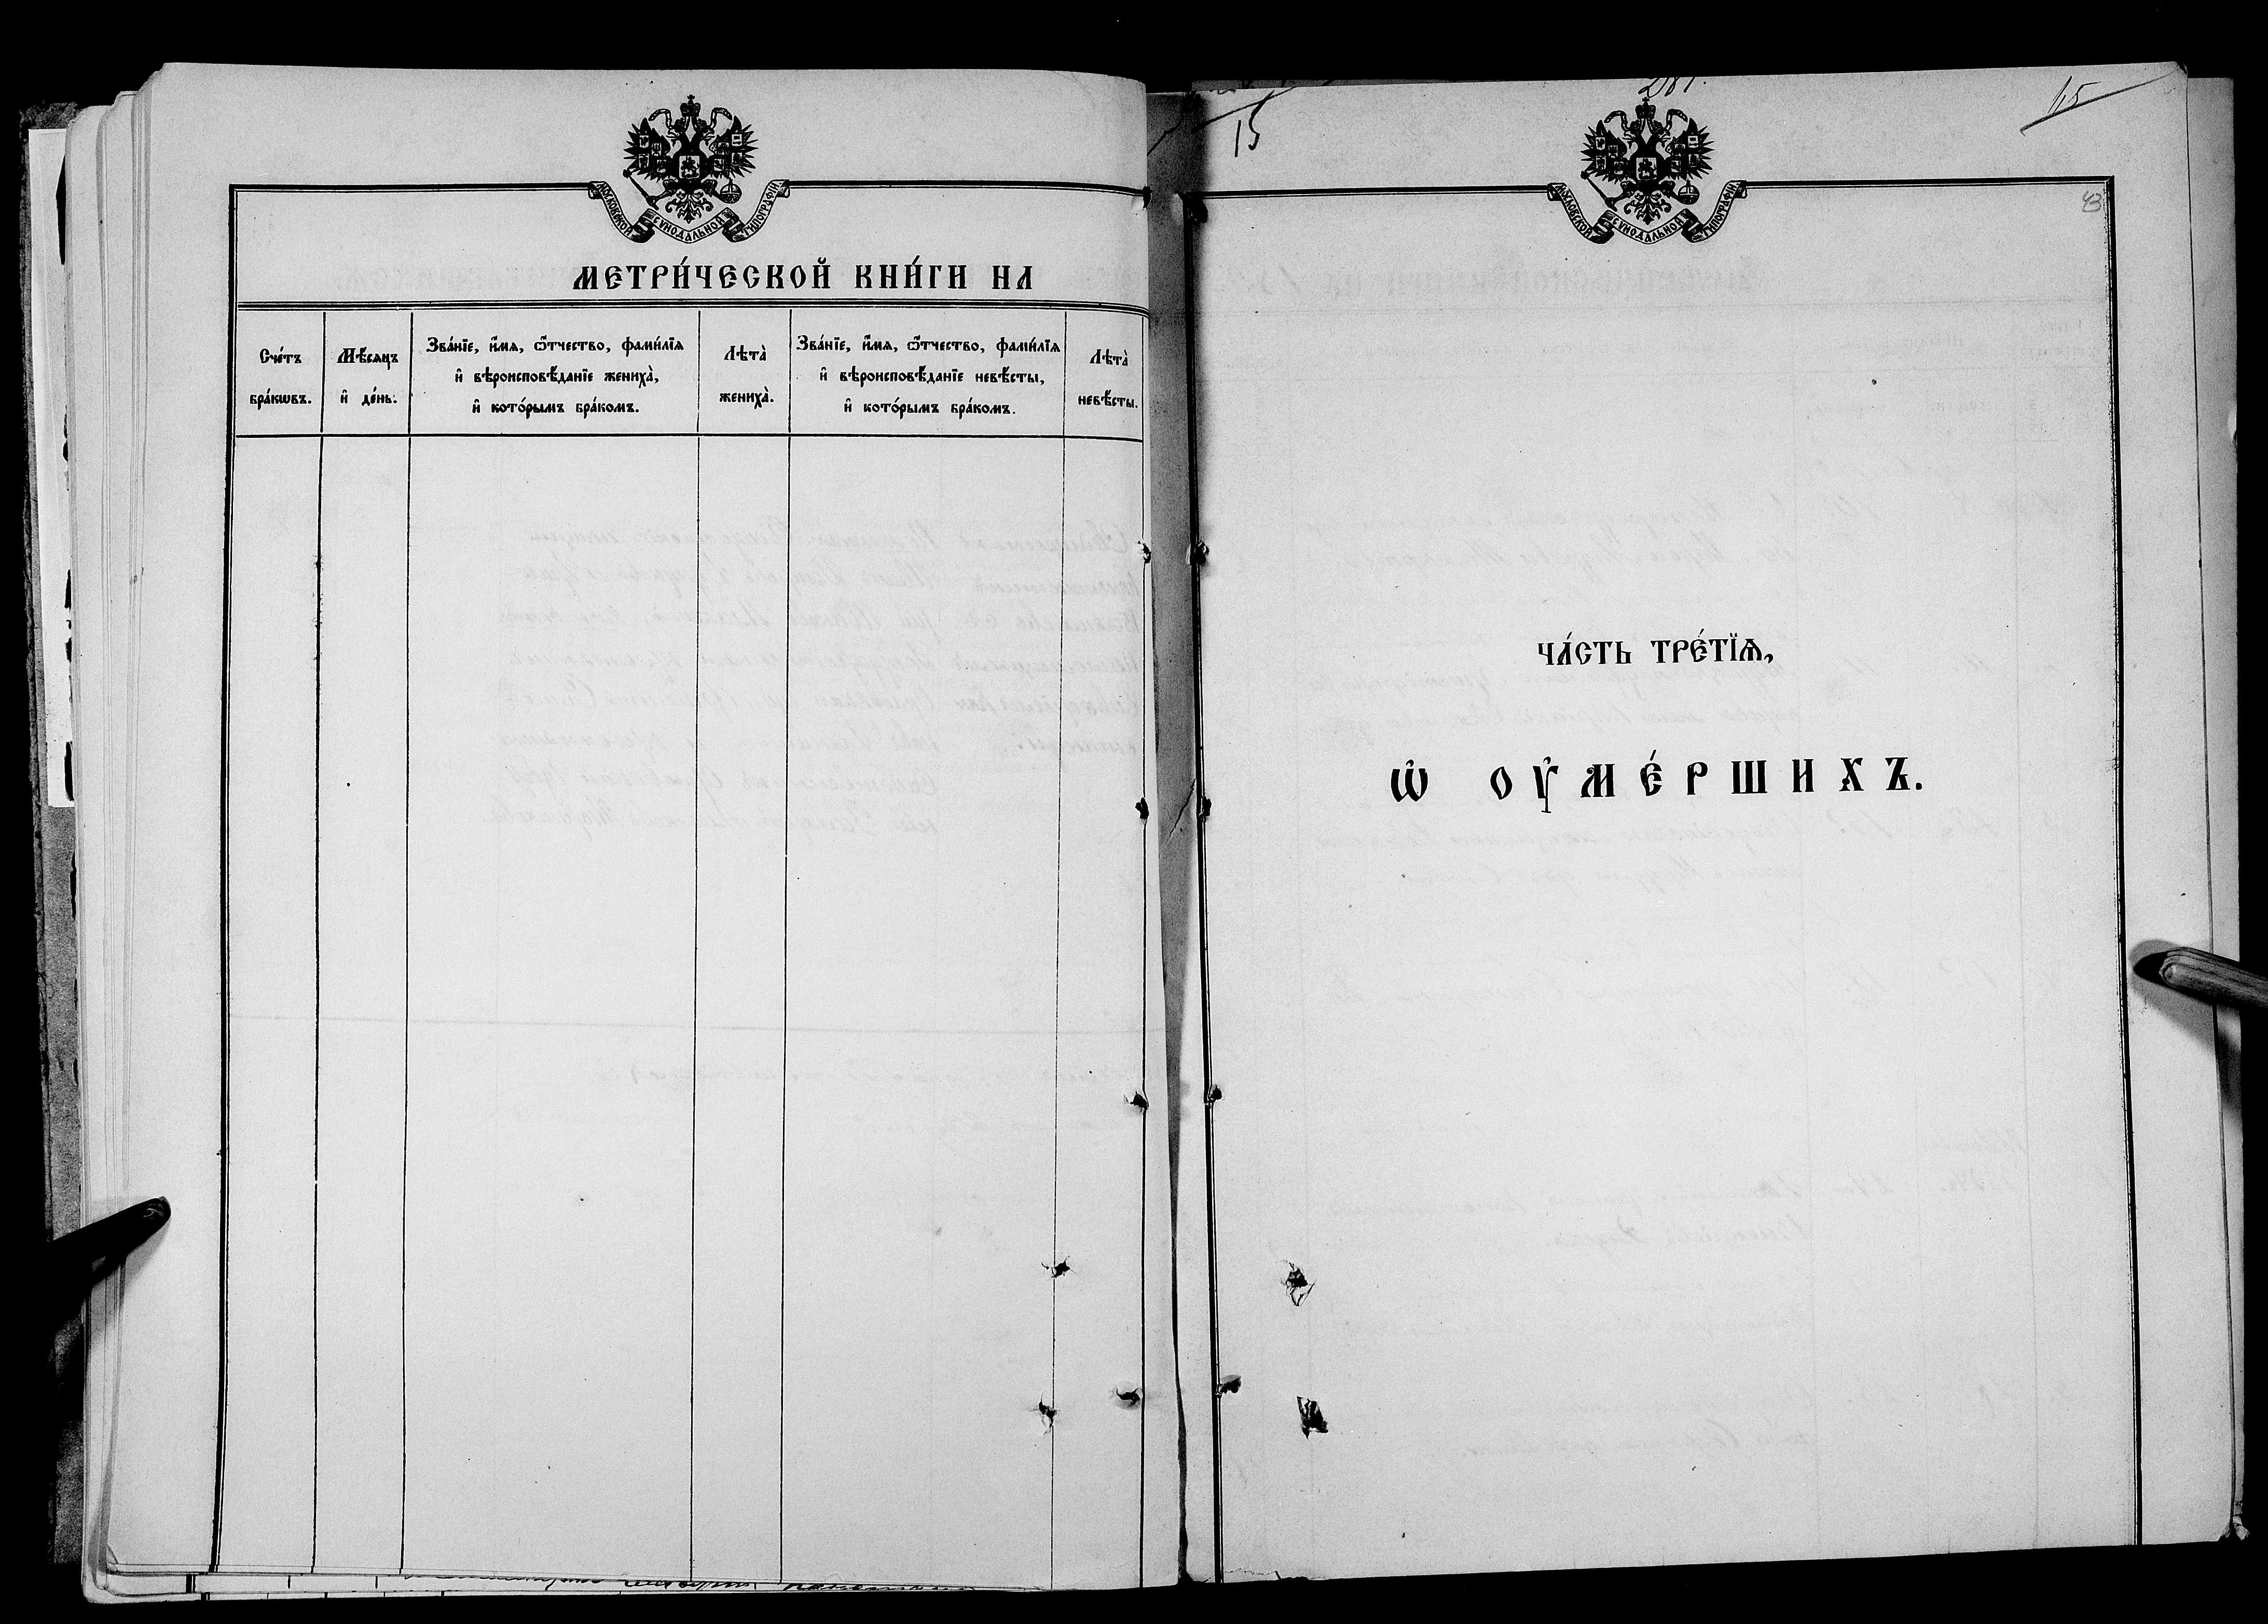 МОСКОВСКОЙ СУНОДАЛЬНОЙ ТИПОГРАФІИ
МЕТРИ́ЧЕСКОЙ КНИ́ГИ НА
Сче́тъ
бра́кѡвъ.
Мѣ́сяцъ
и҆ де́нь.
Зва́нїе, и҆́мя, ѻ҆́тчество, фами́лїя
и҆ вѣроисповѣ́данїе жениха̀,
и҆ кото́рымъ бра́комъ.
Лѣта̀
жениха̀.
Зва́нїе, и҆́мя, ѻ҆́тчество, фами́лїя
и҆ вѣроисповѣ́данїе невѣ́сты,
и҆ кото́рымъ бра́комъ.
Лѣта̀
невѣ́сты.
15
281.
15
43
МОСКОВСКОЙ СУНОДАЛЬНОЙ ТИПОГРАФІИ
ЧА́СТЬ ТРЕ́ТЇѦ,
Ѡ҆ ОУ҆МЕ́РШИХЪ.